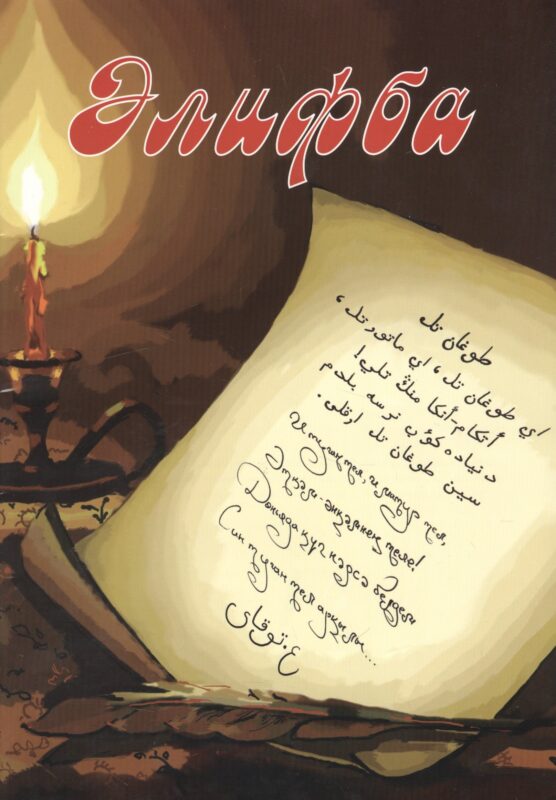 Әлифба
طوغان تل
اي طوغان تل، اي ماتور تل،
أتكام-أنكا منڭ تلي!
دنياده كوب نرسه بلدم
سين طوغان تل ارقلي.
И туган тел, и матур тел,
Әткәм-әнкәмнең теле!
Дөньяда күп нәрсә белдем
Син туган тел аркылы...
ع. توقاى